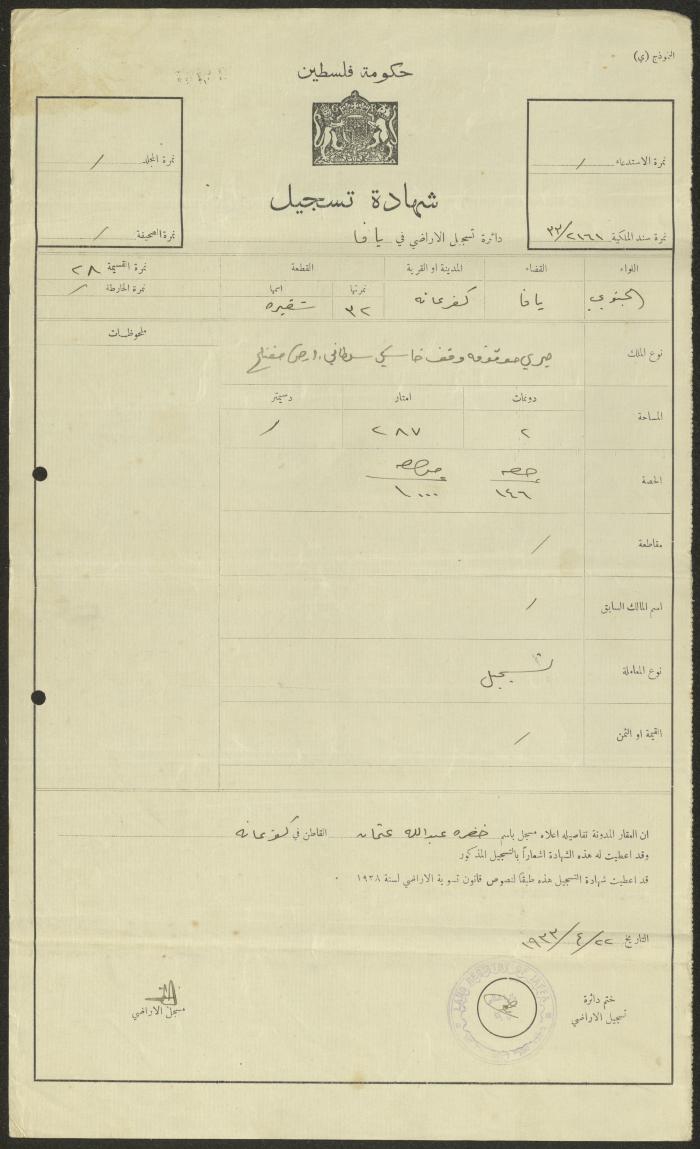 النموذج (ي)
حكومة فلسطين
شهادة تسجيل
دائرة تسجيل الاراضي في يافا
نمرة الاستدعاء /
نمرة سند الملكية ٣٣/٢١٦١
نمرة المجلد /
نمرة الصحيفة /
اللواء القضاء المدينة او القرية القطعة نمرة القسيمة ٢٨
نمرتها اسمها نمرة الخارطة /
الجنوبي يافا كفرعانه ٣٢ شقيره
نوع الملك ميري موقوفه وقف خاسكي سلطاني، ارض مفتلح
ملحوظات
المساحة دونمات امتار دسيمتر
٢ ٢٨٧ /
الحصة حصه
١٤٦ ١٠٠٠
مقاطعة /
اسم المالك السابق /
نوع المعاملة تسجيل
القيمة او الثمن /
ان العقار المدونة تفاصيله اعلاه مسجل باسم خضره عبدالله عثمان القاطن في كفرعانه
وقد اعطيت له هذه الشهادة اشعاراً بالتسجيل المذكور
قد اعطيت شهادة التسجيل هذه طبقا لنصوص قانون تسوية الاراضي لسنة ١٩٢٨ .
التاريخ ٢٢/٤/١٩٣٣
ختم دائرة
تسجيل الاراضي
مسجل الاراضي
LAND REGISTRY OF JAFFA